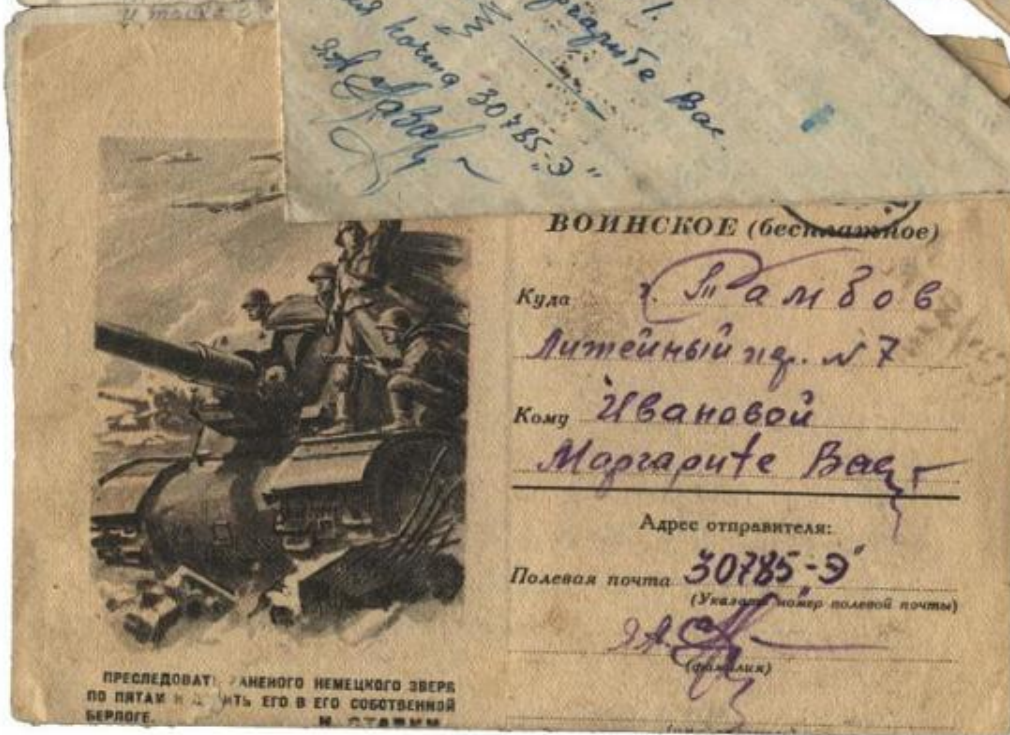 и
1.
Вас.
почта 30785 „Э"
ВОИНСКОЕ (бесплатное)
Куда г. Тамбов
Литейный пр. № 7
Кому Ивановой
Маргарите Вас
Адрес отправителя:
Полевая почта 30785-„Э"
(Указать номер полевой почты)
(фамилия)
ПРЕСЛЕДОВАТ АНЕНОГО НЕМЕЦКОГО ЗВЕРЯ
ПО ПЯТАМ И ИТЬ ЕГО В ЕГО СОБСТВЕННОЙ
БЕРЛОГЕ.
И. СТАЛИН